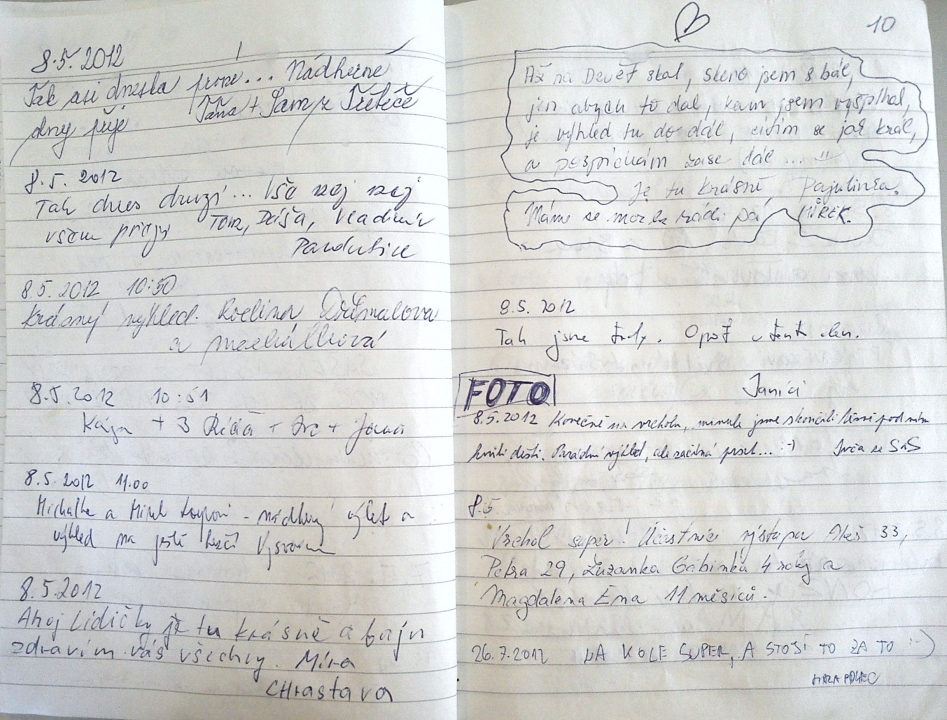 8.5.2012
Tak asi dneska první... Nádherné
dny přeje Táňa +
8.5.2012
Tak dnes druzí... Vše nej nej
všem přejou Tom, Dáša, Vladimír
Pardubice
8.5.2012 10:50
Krásný výhled. Evelina
a
8.5.2012 10:51
Kája + 3 + +
8.5.2012 11.00
Michalka a Mirek - nádherný výlet a
výhled na ještě hezčí Vysočinu
8.5.2012
Ahoj Lidičky je tu krásně a fajn
zdravím vás všechny. Míra
CHrastava
10
Až na Devět skal, stero jsem s bál,
jen abych to dal, kam jsem vyšplhal,
je výhled tu do dál, cítím se jak král,
a pospíchám zase dál ...
Je tu krásně. Pajulinka,
Máme se moc rádi pá JIŘEK.
8.5.2012
Tak jsme tady. Opět v tento den.
Janíci
FOTO
8.5.2012 Konečně na vrcholu, minule jsme skončili těsně pod ním
kvůli dešti. Parádní výhled, ale začíná pršet... :-) Ivča ze SaS
8.5
Vrchol super! Účastníci výstupu Aleš 33,
Petra 29, Zuzanka Gábinka 4 roky a
Magdalena Ema 11 měsíců.
26.7.2012 NA KOLE SUPER, A STOJÍ TO ZA TO :-)